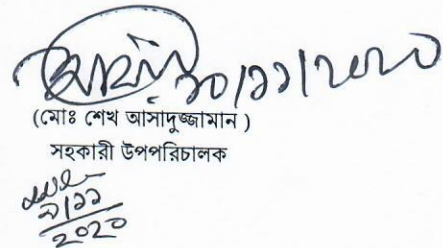 ১০/১১/২০২০
(মোঃ শেখ আসাদুজ্জামান )
সহকারী উপপরিচালক
৯/১১
২০২০